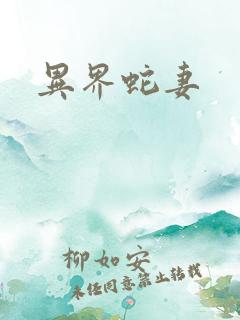 異界蛇妻
柳如安
未經同意禁止轉載